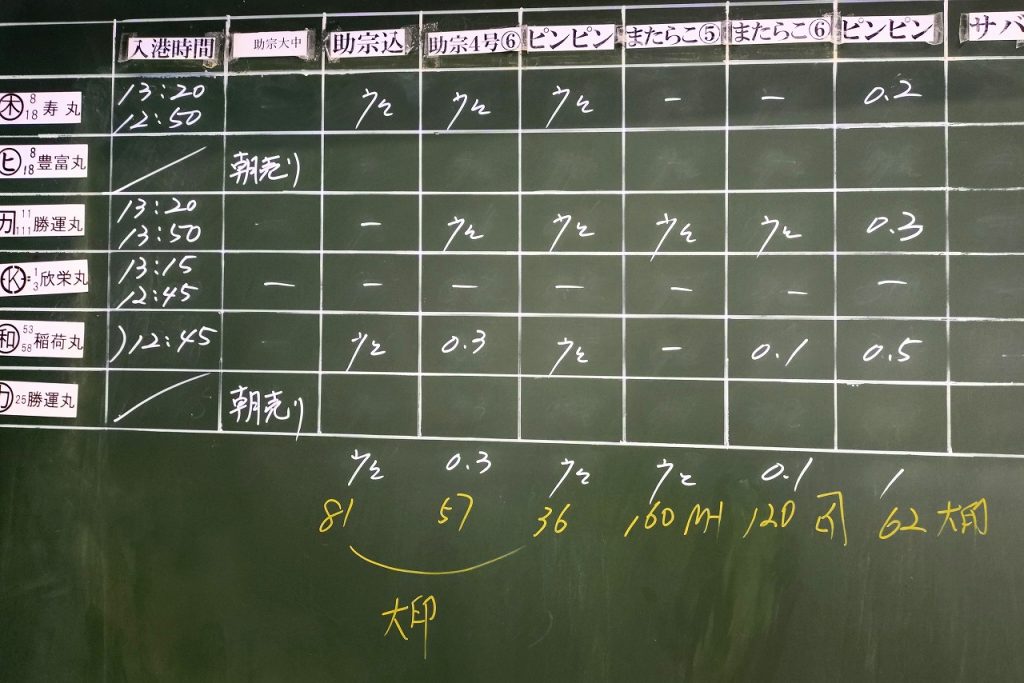 入港時間 助宗大中 助宗込 助宗4号⑥ ピンピン またらこ⑤ またらこ⑥ ピンピン サバ
木 8 18 寿丸 13:20 12:50 ウと ウと ウと - - 0.2
ヒ 8 18 豊富丸 / 朝売り
カ 11 111 勝運丸 13:20 13:50 - - ウと ウと ウと ウと 0.3
K 1 3 欣栄丸 13:15 12:45 - - - - - - -
和 53 58 稲荷丸 )12:45 - ウと 0.3 ウと - 0.1 0.5
カ 25 勝運丸 / 朝売り
ウと 0.3 ウと ウと 0.1 1
81 57 36 160 120 62 大印
大印